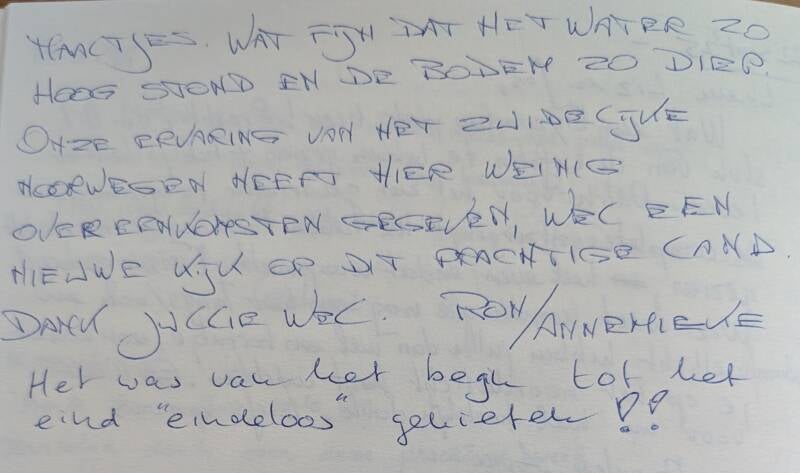 MAATJES. WAT FIJN DAT HET WATER ZO
HOOG STOND EN DE BODEM ZO DIEP.
ONZE ERVARING VAN HET ZUIDELIJKE
NOORWEGEN HEEFT HIER WEINIG
OVEREENKOMSTEN GEGEVEN, WEL EEN
NIEUWE KIJK OP DIT PRACHTIGE LAND.
DANK JULLIE WEL. RON/ANNEMIEKE
Het was van het begin tot het
eind "eindeloos" genieten!!